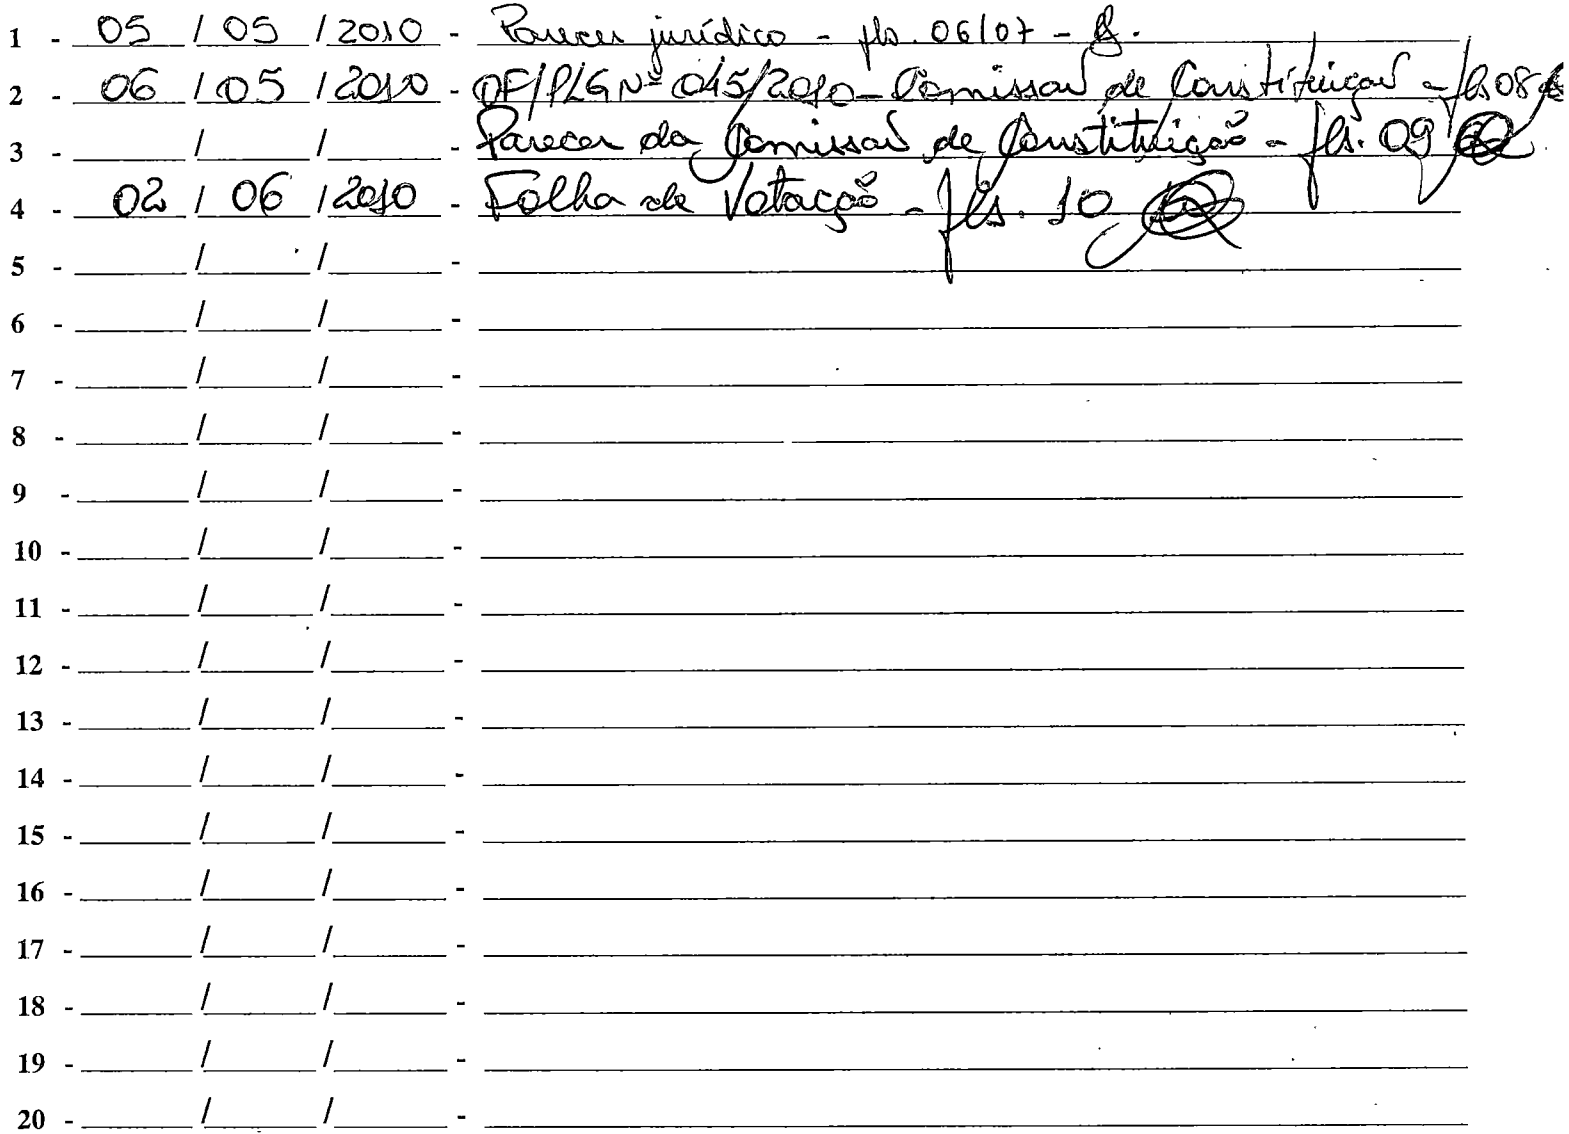 1 - 05 / 05 / 2010 - Parecer jurídico - fls. 06/07 -
2 - 06 / 05 / 2010 - OF/PLG Nº 045/2010 - Comissão de Constituição - fls 08
3 - / / - Parecer da Comissão de Constituição - fls. 09
4 - 02 / 06 / 2010 - Folha de Votação - fls. 10
5 - / / -
6 - / / -
7 - / / -
8 - / / -
9 - / / -
10 - / / -
11 - / / -
12 - / / -
13 - / / -
14 - / / -
15 - / / -
16 - / / -
17 - / / -
18 - / / -
19 - / / -
20 - / / -